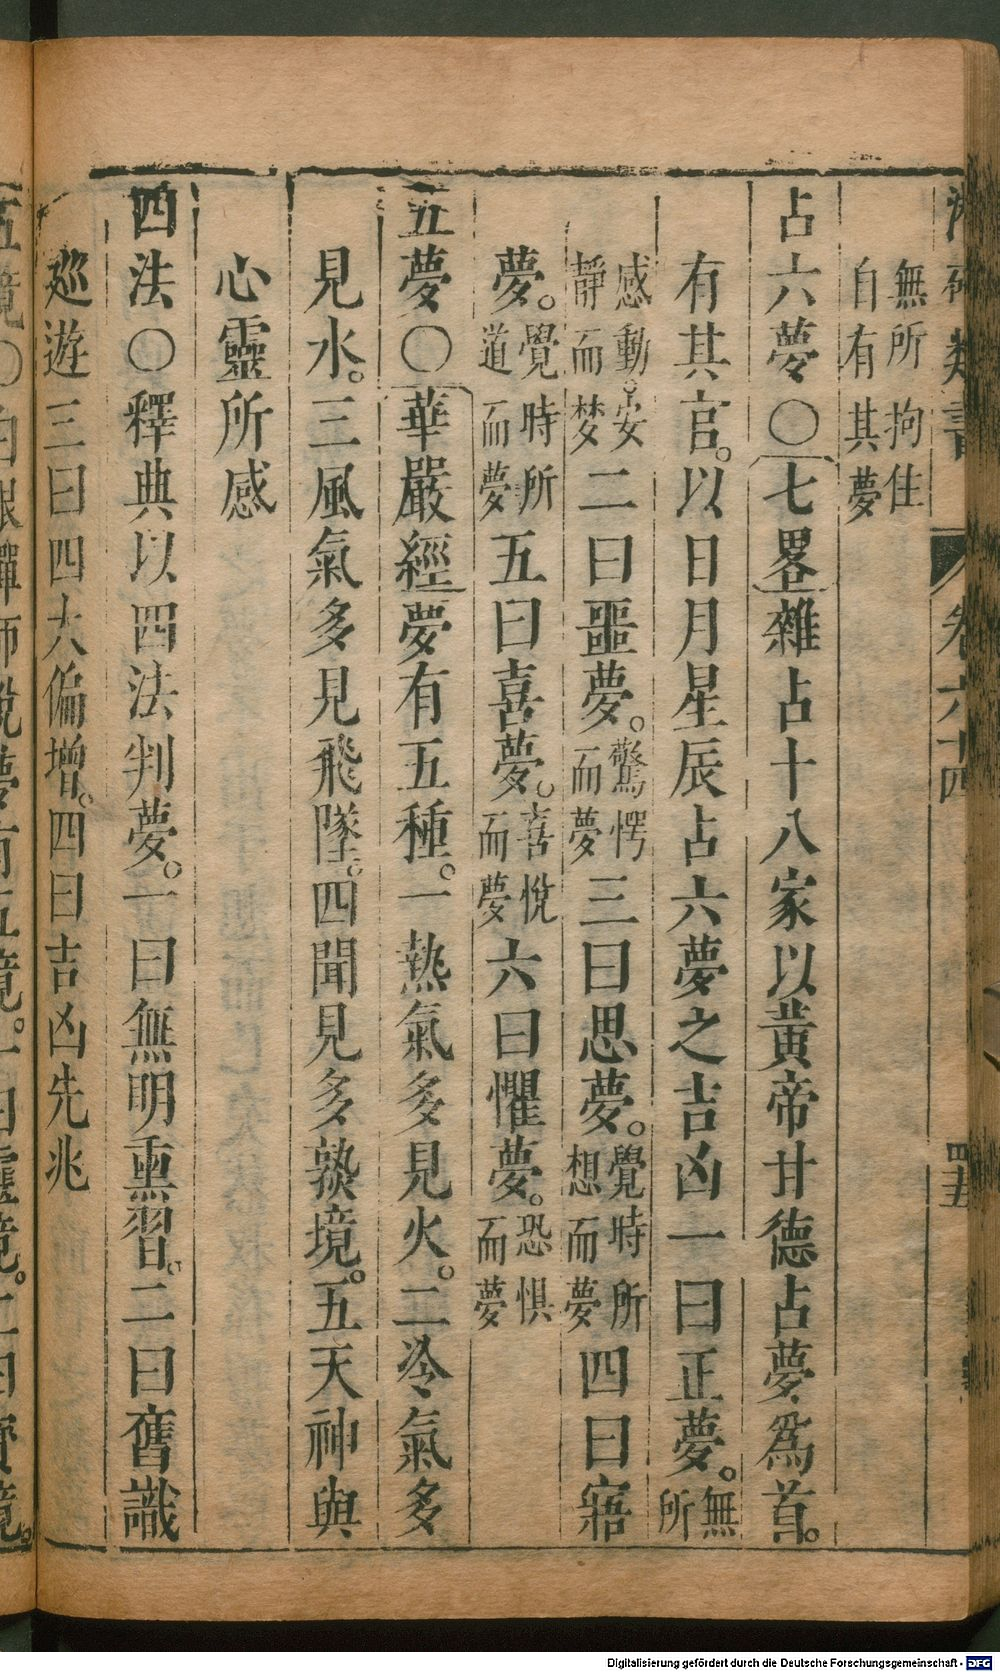 類書 卷六十四
無所拘住
自有其夢
占六夢〇七畧雜占十八家以黃帝甘德占夢爲首。
有其官。以日月星辰占六夢之吉凶一曰正夢。無所
感動。安靜而梦二曰噩夢。驚愕而夢三曰思夢。覺時所想而夢四曰寤
夢。覺時所道而夢五曰喜夢。喜悅而夢六曰懼夢。恐惧而夢
五夢〇華嚴經夢有五種。一熱氣多見火。二冷氣多
見水。三風氣多見飛墜。四聞見多孰境。五天神與
心靈所感
四法〇釋典以四法判夢。一曰無明熏習。二曰舊識
巡遊三曰四大偏增。四曰吉凶先兆
五境〇 師說夢有五境。一曰靈境。二曰寶境。
Digitalisierung gefördert durch die Deutsche Forschungsgemeinschaft - DFG